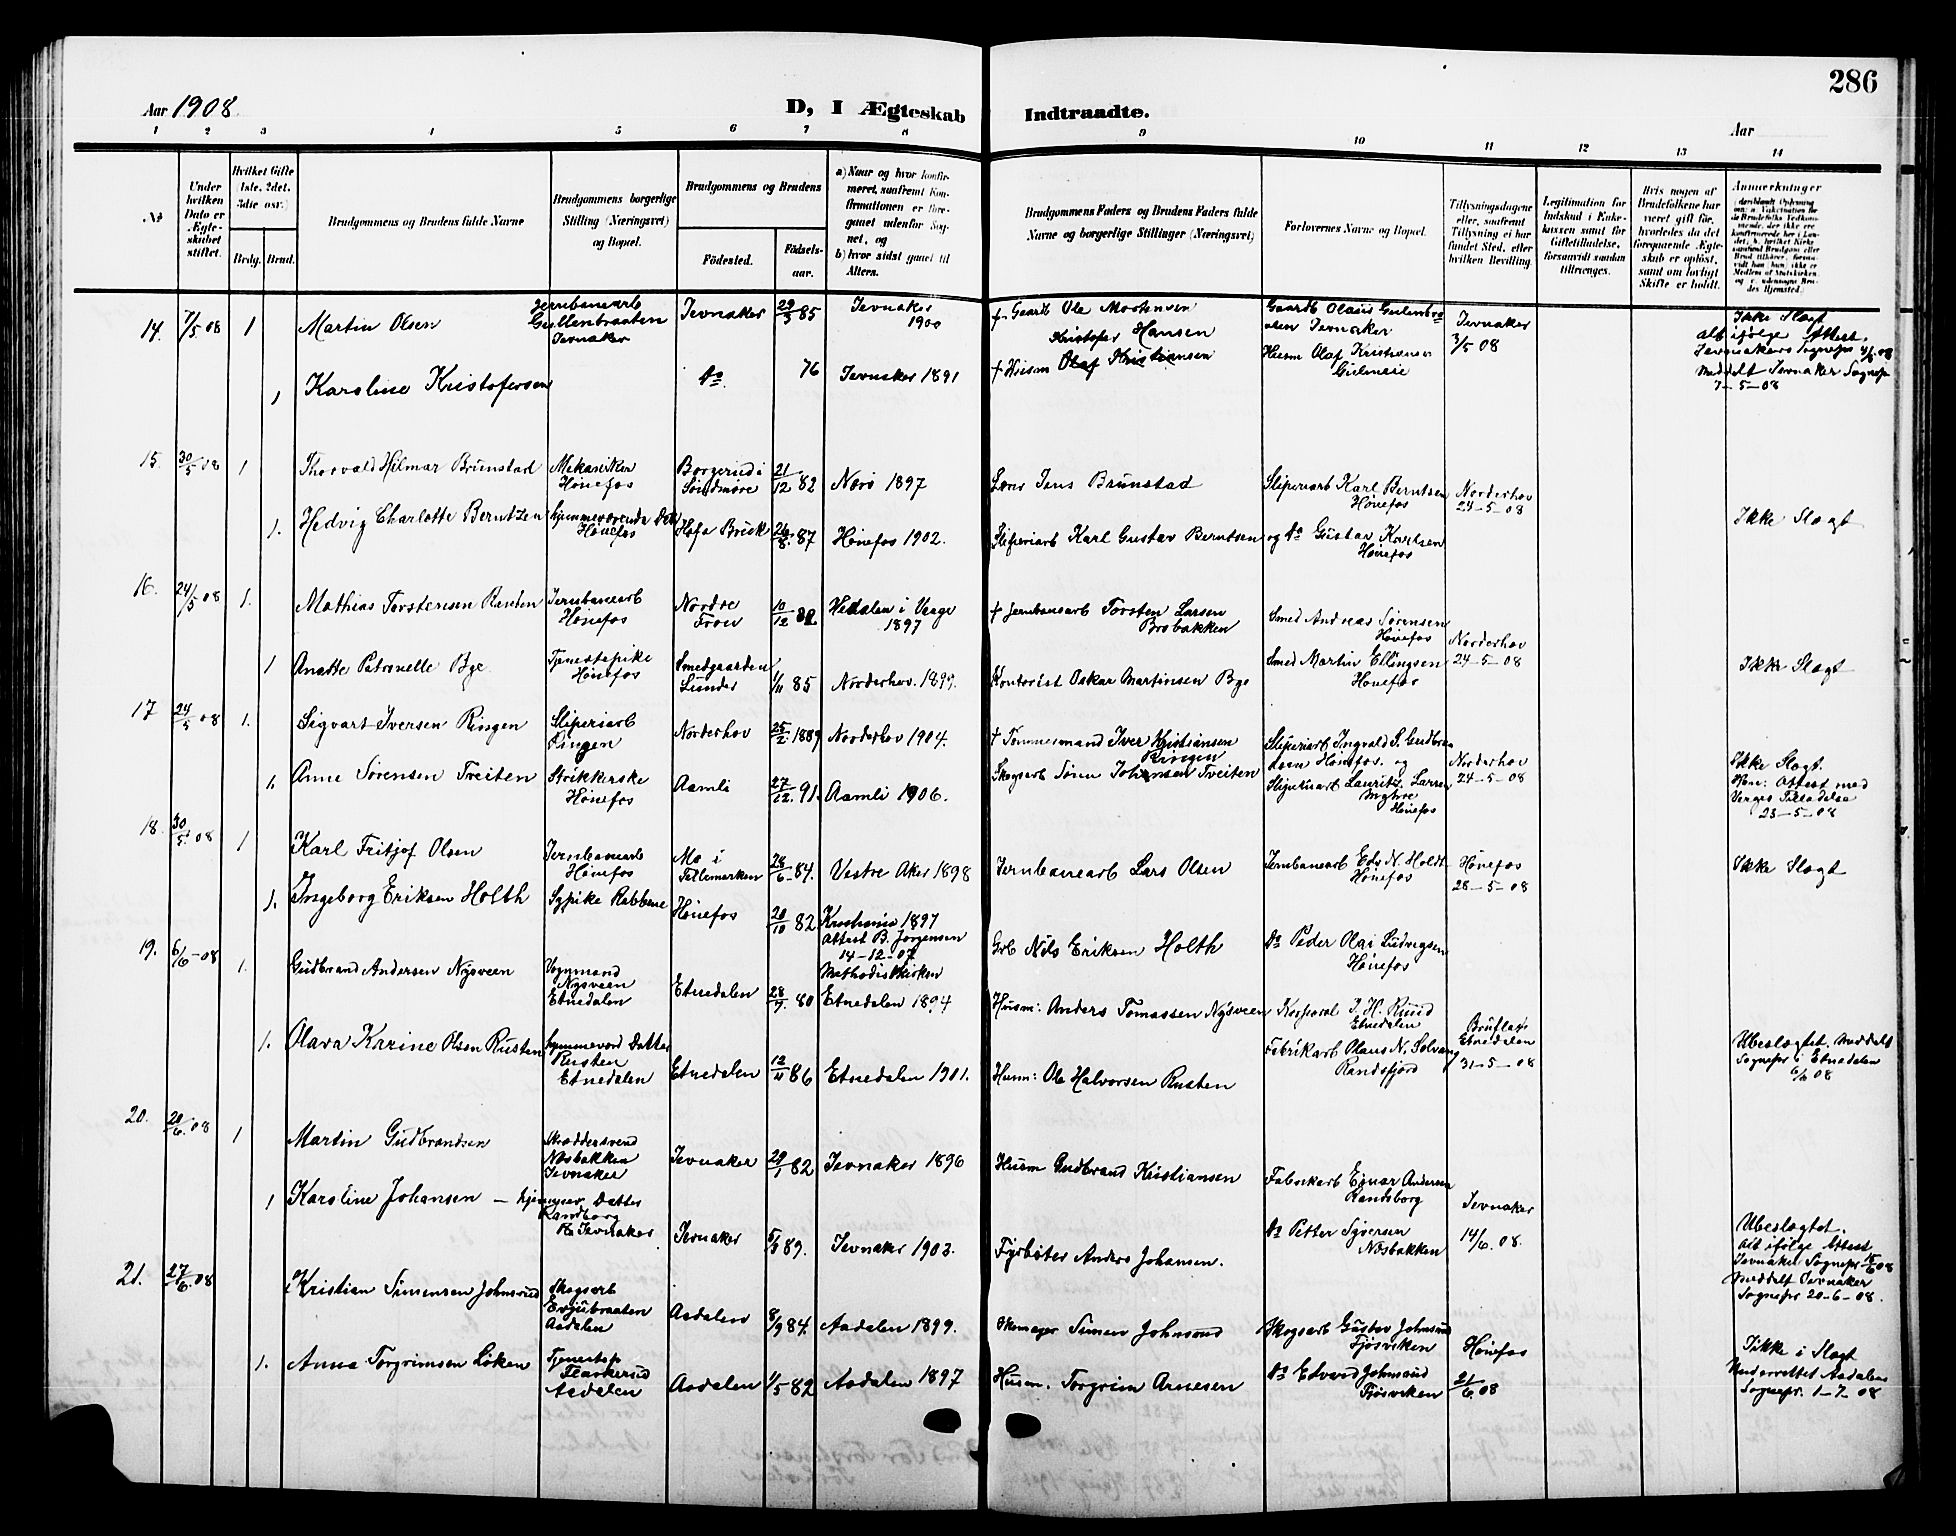 286
Aar 1908.
D, I Ægteskab Indtraadte.
Aar
1 2 3 4 5 6 7 8 9 10 11 12 13 14
No
Under hvilken Dato er Ægteskabet stiftet.
Hvilket Gifte (1ste, 2det, 3die osv.)
Brdg. Brud.
Brudgommens og Brudens fulde Navne
Brudgommens borgerlige Stilling (Næringsvei) og Bopæl.
Brudgommens og Brudens
Fødested.
Fødselsaar.
a) Naar og hvor konfirmeret, saafremt Konfirmationen er foregaaet udenfor Sognet, og
b) hvor sidst gaaet til Alters.
Brudgommens Faders og Brudens Faders fulde Navne og borgerlige Stillinger (Næringsvei)
Forlovernes Navne og Bopæl.
Tillysningsdagene eller, saafremt Tillysning ei har fundet Sted, efter hvilken Bevilling.
Legitimation for Indskud i Enkekassen samt for Giftetilladelse, forsaavidt saadan tiltrænges.
Hvis nogen af Brudefolkene har været gift før, hvorledes da det foregaaende Ægteskab er opløst, samt om lovligt Skifte er holdt.
Anmærkninger
14. 7/5 08 1 Martin Olsen Jernbanearb Gullenbraaten Jevnaker Jevnaker 29/3 85 Jevnaker 1900 + Gaardb Ole Mortensen Gaardb Olaus Gulenbraaten Jevnaker Jevnaker 3/5 08
Ikke Slægt
alt ifølge Attest
Jevnakers Sognepr 4/5 08
Meddelt Jevnaker Sognepr
7-5-08
1 Karoline Kristofersen do. 76 Jevnaker 1891 + Husm Kristofer Hansen Husm Olaf Kristiansen
15. 30/5 08 1 Thorvald Hilmar Brunstad Mekaniker Hønefos Borgerud i Søndmøre 21/12 82 Norø 1897 Lars Jens Brunstad Sliperiarb Karl Berntsen Hønefos Norderhov 24-5-08
1. Hedvig Charlotte Berntzen hjemmeværende Datt Hønefos Hofs Brug 26/8 87 Hønefos 1902. Sliperiarb Karl Gustav Berntsen og do Gustav Karlsen Hønefos Ikke Slægt
16. 24/5 08 1. Mathias Torstensen Randen Jernbanearb Hønefos Nordre Fron 10/12 82 Hedalen i Vaage 1897 + Jernbanearb Torsten Larsen Brobakken Smed Andreas Sørensen Hønefos Norderhov 24-5-08
1 Anette Petronelle Bye Tjenestepike Hønefos Smedgaarden Lunder 1/11 85 Norderhov. 1899. Kontorist Oskar Martinsen Bye Smed Martin Ellingsen Hønefos Ikke Slægt
17 24/5 08 1. Sigvart Iversen Ringen Sliperiarb Ringen Norderhov 25/2 1889 Norderhov 1904. + Tømmermand Iver Kristiansen Ringen Sliperiarb Ingvald G. Gudbrandsen Hønefos. og Norderhov 24-5-08
1. Anne Sørensen Treiten Strikkerske Hønefos Aamli 27/12. 91. Aamli 1906. Skogsarb Søren Johansen Treiten Sliperiarb Laurits Larsen Hønefos
Ikke Slægt.
Hen: Attest med
Verges Tilladelse
23-5-08
18. 30/5 08 1 Karl Fritjof Olsen Jernbanearb Hønefos Mo i Tellemarken 28/6 84. Vestre Aker 1898 Jernbanearb Lars Olsen Jernbanearb Edv. N. Holdt Hønefos Hønefos 28-5-08 Ikke Slægt
1. Ingeborg Eriksen Holth Sypike Hønefos 20/10 82 Kristiania 1897 Attest B. Jørgensen 14-12-07 Methodistkirken Grb Nils Eriksen Holth do Peder Olai Ludvigsen Hønefos
19. 6/6-08 1. Gudbrand Andersen Nysveen Vognmand Nysveen Etnedalen Etnedalen 28/7. 80 Etnedalen 1894 Husm: Anders Tomassen Nysveen Korporal J. H. Ruud Etnedalen Bruflat Etnedalen 31-5-08
1. Olava Karine Olsen Rusten hjemmevær Datter Rusten Etnedalen Etnedalen 12/11 86 Etnedalen 1901. Husm: Ole Halvorsen Rusten Fabrikarb Olaus N. Solvang Randsfjord
Ubeslægtet. Meddelt
Sognepr i Etnedalen
6/6 08
20. 20/6 08 1 Martin Gudbrandsen Skræddersvend Næsbakken Jevnaker Jevnaker 29/1 82 Jevnaker 1896 Husm Gudbrand Kristiansen Fabrikarb Einar Andersen Randsborg Jevnaker 14/6. 08.
1 Karoline Johansen – hjemmev Datter Randborg Jevnaker Jevnaker 5/3 89. Jevnaker 1903. Fyrbøter Anders Johansen. do Petter Syversen Næsbakken
Ubeslægtet.
Alt ifølge Attest
Jevnaker Sognepr 15/6 08
Meddelt Jevnaker
Sognepr 20-6-08.
21. 27/6 08 1 Kristian Simensen Johnsrud Skogsarb Evjubraaten Aadalen Aadalen 8/9 84. Aadalen 1899. Skomager Simen Johnsrud Skogsarb Gustav Johnsrud Fjøsviken Hønefos 21/6 08
1. Anna Torgrimsen Løken Tjenestep Flaskerud Aadalen Aadalen 1/5 82 Aadalen 1897 Husm. Torgrim Arnesen do Edvard Johnsrud Fjøsviken
Ikke i Slægt
Underrettet Aadalens
Sognepr. 1-7-08